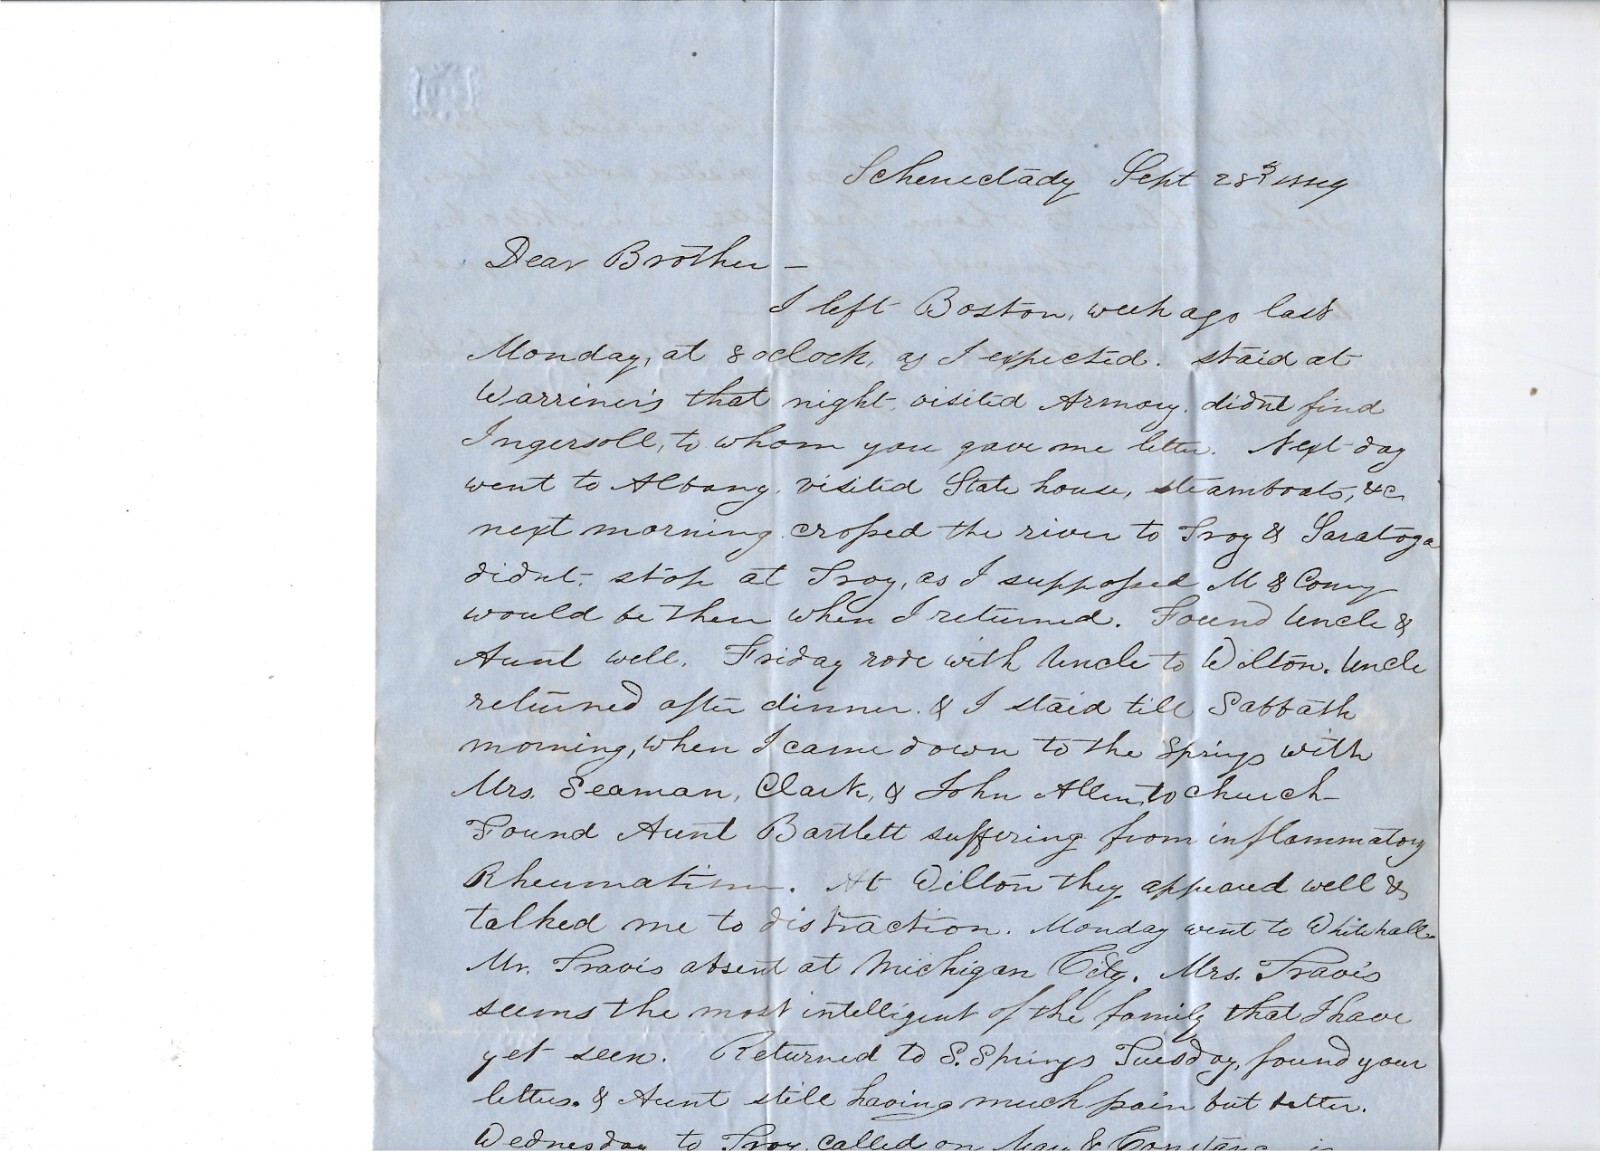 Schenectady Sept 28th 1849
Dear Brother –
I left Boston, week ago last
Monday, at 8 oclock, as I expected. staid at
Warriner's that night, visited Armory. didnt find
Ingersoll, to whom you gave me letter. Next day
went to Albany, visited State house, steamboats, &c
next morning crossed the river to Troy & Saratoga
didnt stop at Troy, as I supposed M & Comy
would be then when I returned. Found Uncle &
Aunt well. Friday rode with Uncle to Wilton. Uncle
returned after dinner & I staid till Sabbath
morning, when I came down to the Springs with
Mrs. Seaman, Clark, & John Allen, to church –
Found Aunt Bartlett suffering from inflammatory
Rheumatism. At Wilton they appeared well &
talked me to distraction. Monday went to Whitehall
Mr. Travis absent at Michigan City. Mrs. Travis
seems the most intelligent of the family that I have
yet seen. Returned to S. Springs Tuesday, found your
letters. & Aunt still having much pain but better.
Wednesday to Troy, called on &